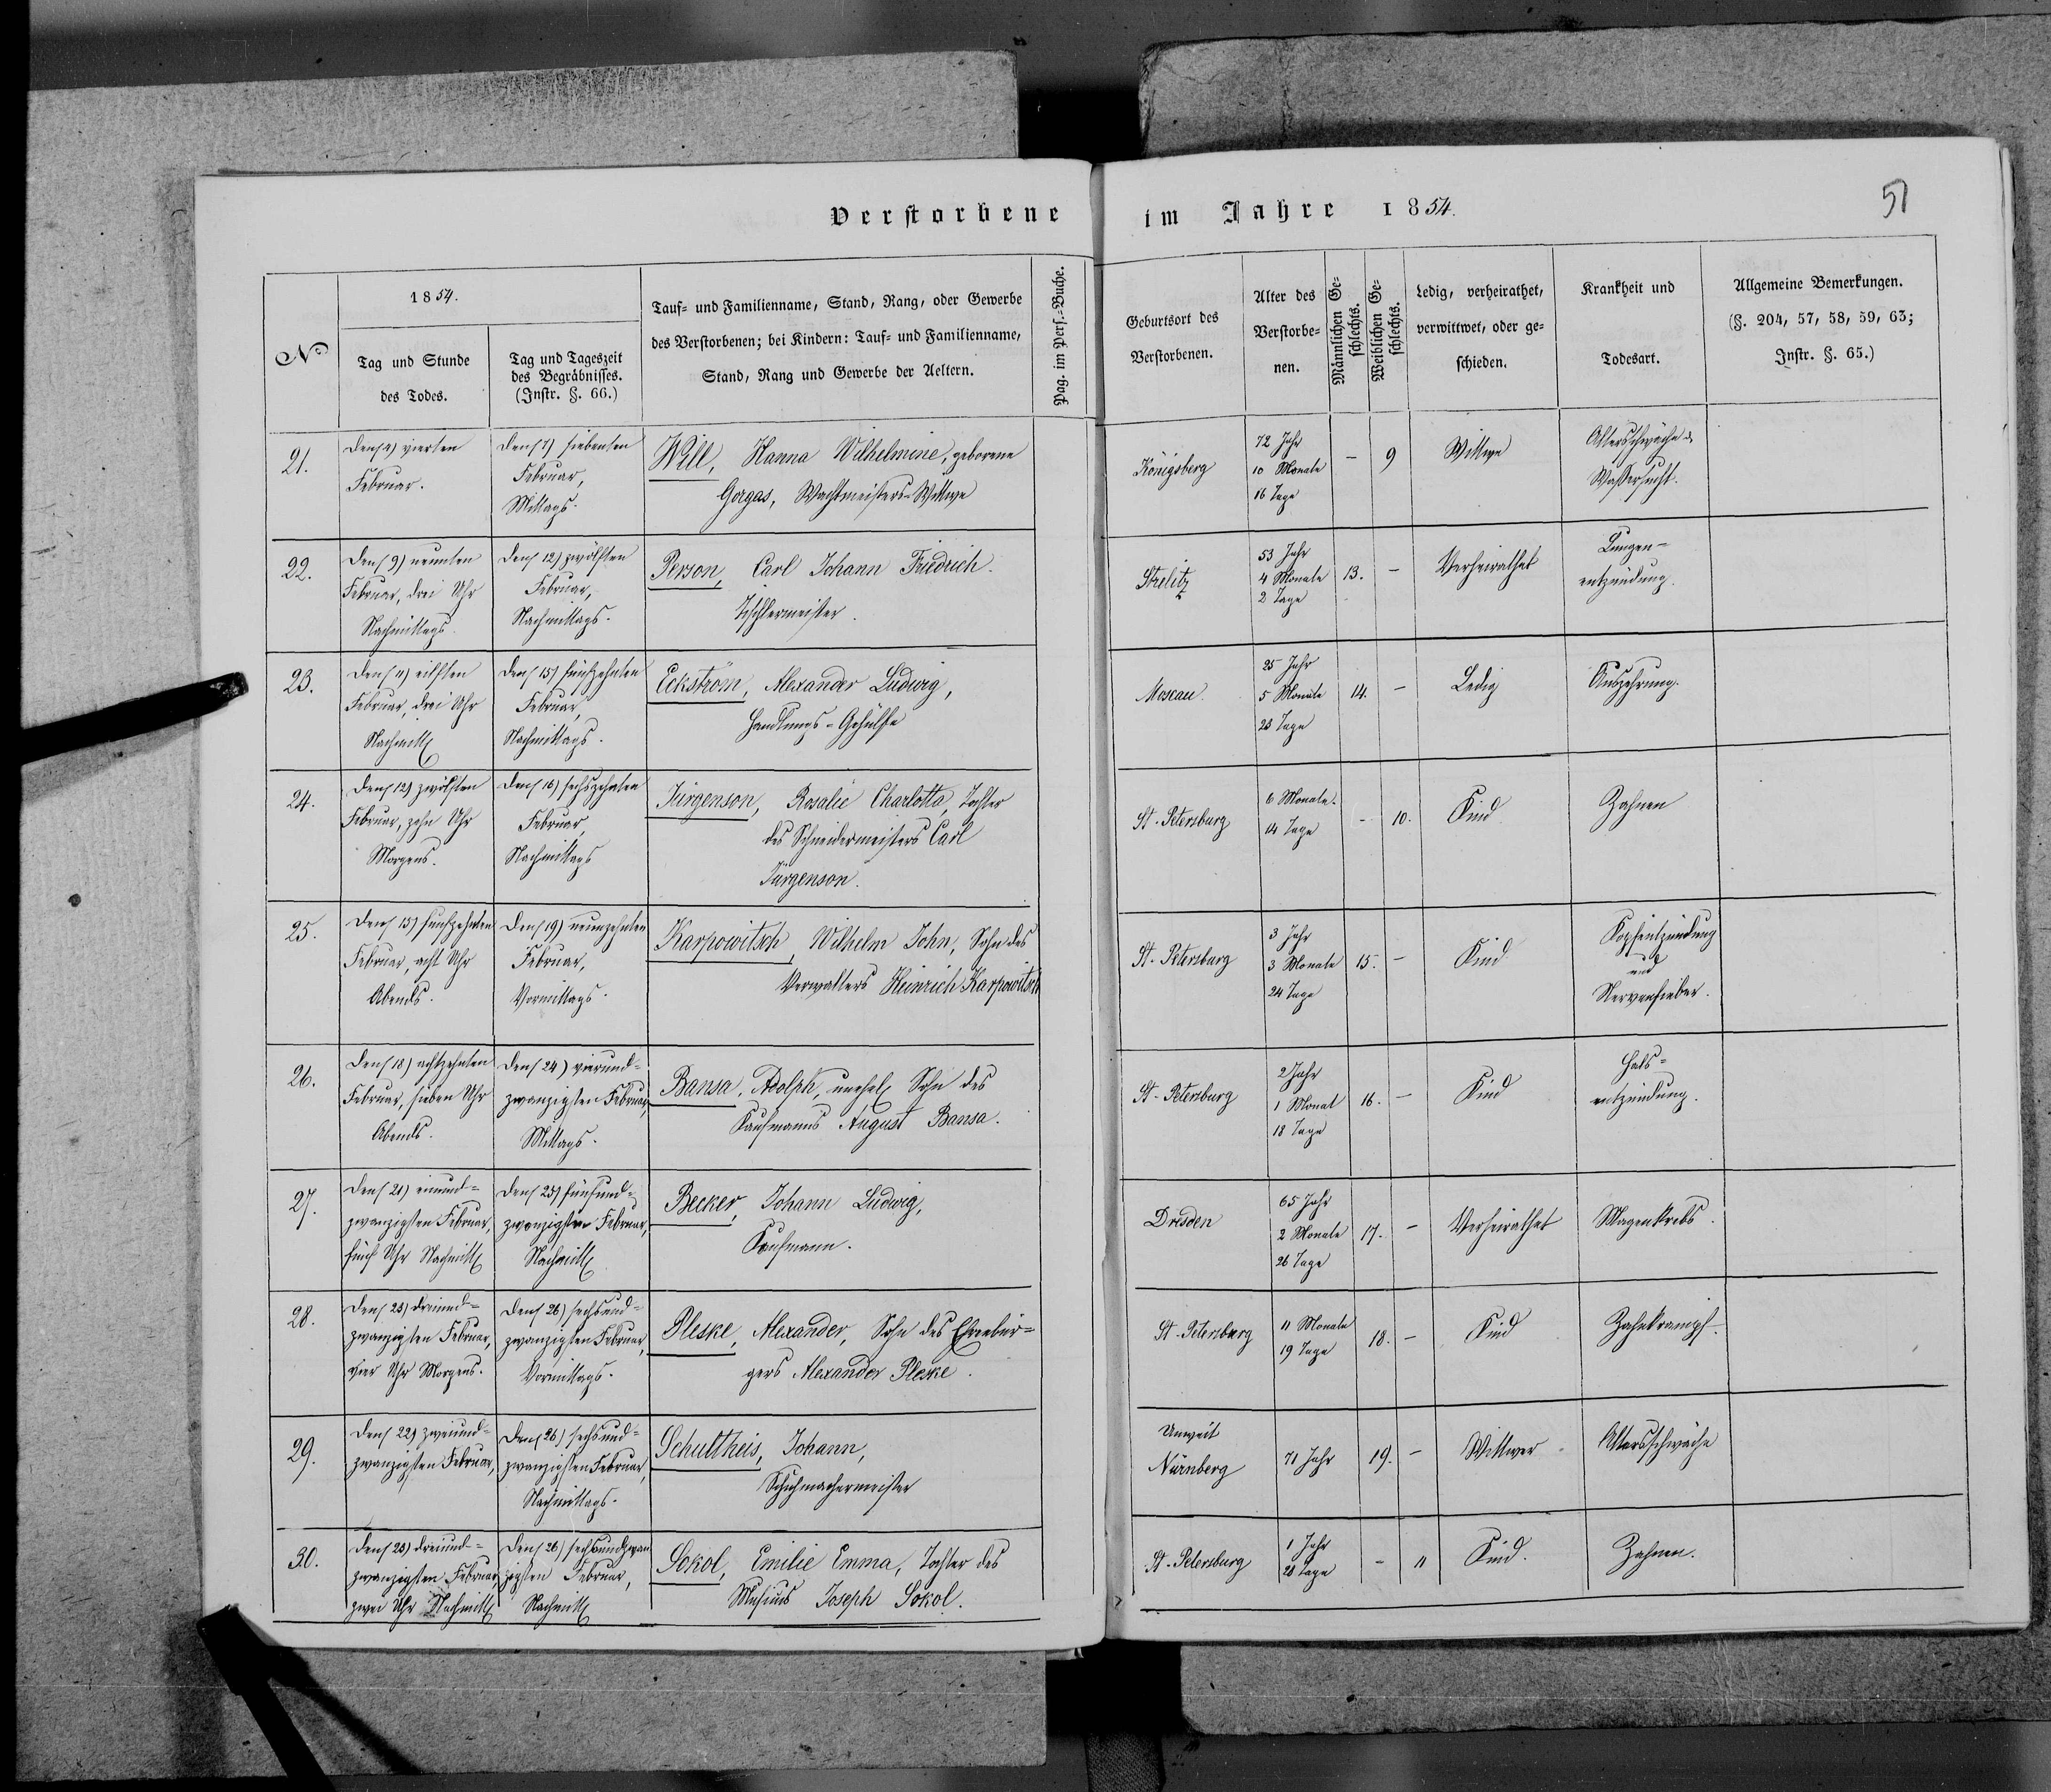 Verstorbene im Jahre 1854.
51
No
1854.
Tag und Stunde
des Todes.
Tag und Tageszeit
des Begräbnisses.
(Instr. §. 66.)
Tauf- und Familienname, Stand, Rang, oder Gewerbe
des Verstorbenen; bei Kindern: Tauf- und Familienname,
Stand, Rang und Gewerbe der Aeltern.
Pag. im Pers.-Buche.
Geburtsort des
Verstorbenen.
Alter des
Verstorbe-
nen.
Männlichen Ge-
schlechts.
Weiblichen Ge-
schlechts.
Ledig, verheirathet,
verwittwet, oder ge-
schieden.
Krankheit und
Todesart.
Allgemeine Bemerkungen.
(§. 204, 57, 58, 59, 63;
Instr. §. 65.)
21.
Den (4) vierten
Februar.
Den (7) siebenten
Februar,
Mittags.
Will, Hanna Wilhelmine, geborene
Gorgas, Wachtmeisters-Wittwe
Königsberg
72 Jahr
10 Monate
16 Tage
-
9
Wittwe
Altersschwäche &
Wassersucht.
22.
Den (9) neunten
Februar, drei Uhr
Nachmittags
Den (12) zwölften
Februar,
Nachmittags.
Person, Carl Johann Friedrich.
Tischlermeister.
Strelitz
53 Jahr
4 Monate
2 Tage
13.
-
Verheirathet
Lungen-
entzündung.
23.
Den (11) eilften
Februar, drei Uhr
Nachmitt
Den (15) fünfzehnten
Februar,
Nachmittags.
Eckström, Alexander Ludwig,
Handlungs-Gehülfe
Moscau
25 Jahr
5 Monate
23 Tage
14.
-
Ledig
Auszehrung.
24.
Den (12) zwölften
Februar, zehn Uhr
Morgens.
Den (16) sechszehnten
Februar,
Nachmittags
Jürgenson, Rosalie Charlotta, Tochter
des Schneidermeisters Carl
Jürgenson.
St. Petersburg
6 Monate.
14 Tage
-
10.
Kind
Zahnen
25.
Den (15) funfzehnten
Februar, acht Uhr
Abends.
Den (19) neunzehnten
Februar,
Vormittags.
Karpowitsch, Wilhelm John, Sohn des
Verwalters Heinrich Karpowitsch
St. Petersburg
3 Jahr
3 Monate
24 Tage
15.
-
Kind
Kopfentzündung
und
Nervenfieber.
26.
Den (18) achtzehnten
Februar, sieben Uhr
Abends.
Den (24) vierund-
zwanzigsten Februar,
Mittags.
Bansa, Adolph, unehel Sohn des
Kaufmanns August Bansa.
St. Petersburg
2 Jahr
1 Monat
18 Tage
16.
-
Kind
Hals-
entzündung.
27.
Den (21) einund-
zwanzigsten Februar,
fünf Uhr Nachmitt
Den (25) fünfund-
zwanzigsten Februar,
Nachmitt
Becker, Johann Ludwig,
Kaufmann.
Dresden
65 Jahr
2 Monate
26 Tage
17.
-
Verheirathet
Magenkrebs.
28.
Den (23) dreiund-
zwanzigsten Februar,
vier Uhr Morgens.
Den (26) sechsund-
zwanzigsten Februar,
Vormittags.
Pleske, Alexander, Sohn des Ehrenbür-
gers Alexander Pleske.
St. Petersburg
11 Monate
19 Tage
18.
-
Kind
Zahnkrampf.
29.
Den (22) zweiund-
zwanzigsten Februar,
Den (26) sechsund-
zwanzigsten Februar,
Nachmittags.
Schultheis, Johann,
Schuhmachermeister
Unweit
Nürnberg
71 Jahr
19.
-
Wittwer
Altersschwäche
30.
Den (23) dreiund-
zwanzigsten Februar,
zwei Uhr Nachmitt
Den (26) sechsundzwan
zigsten Februar,
Nachmitt
Sokol, Emilie Emma, Tochter des
Musicus Joseph Sokol.
St. Petersburg
1 Jahr
28 Tage
-
11
Kind.
Zahnen.